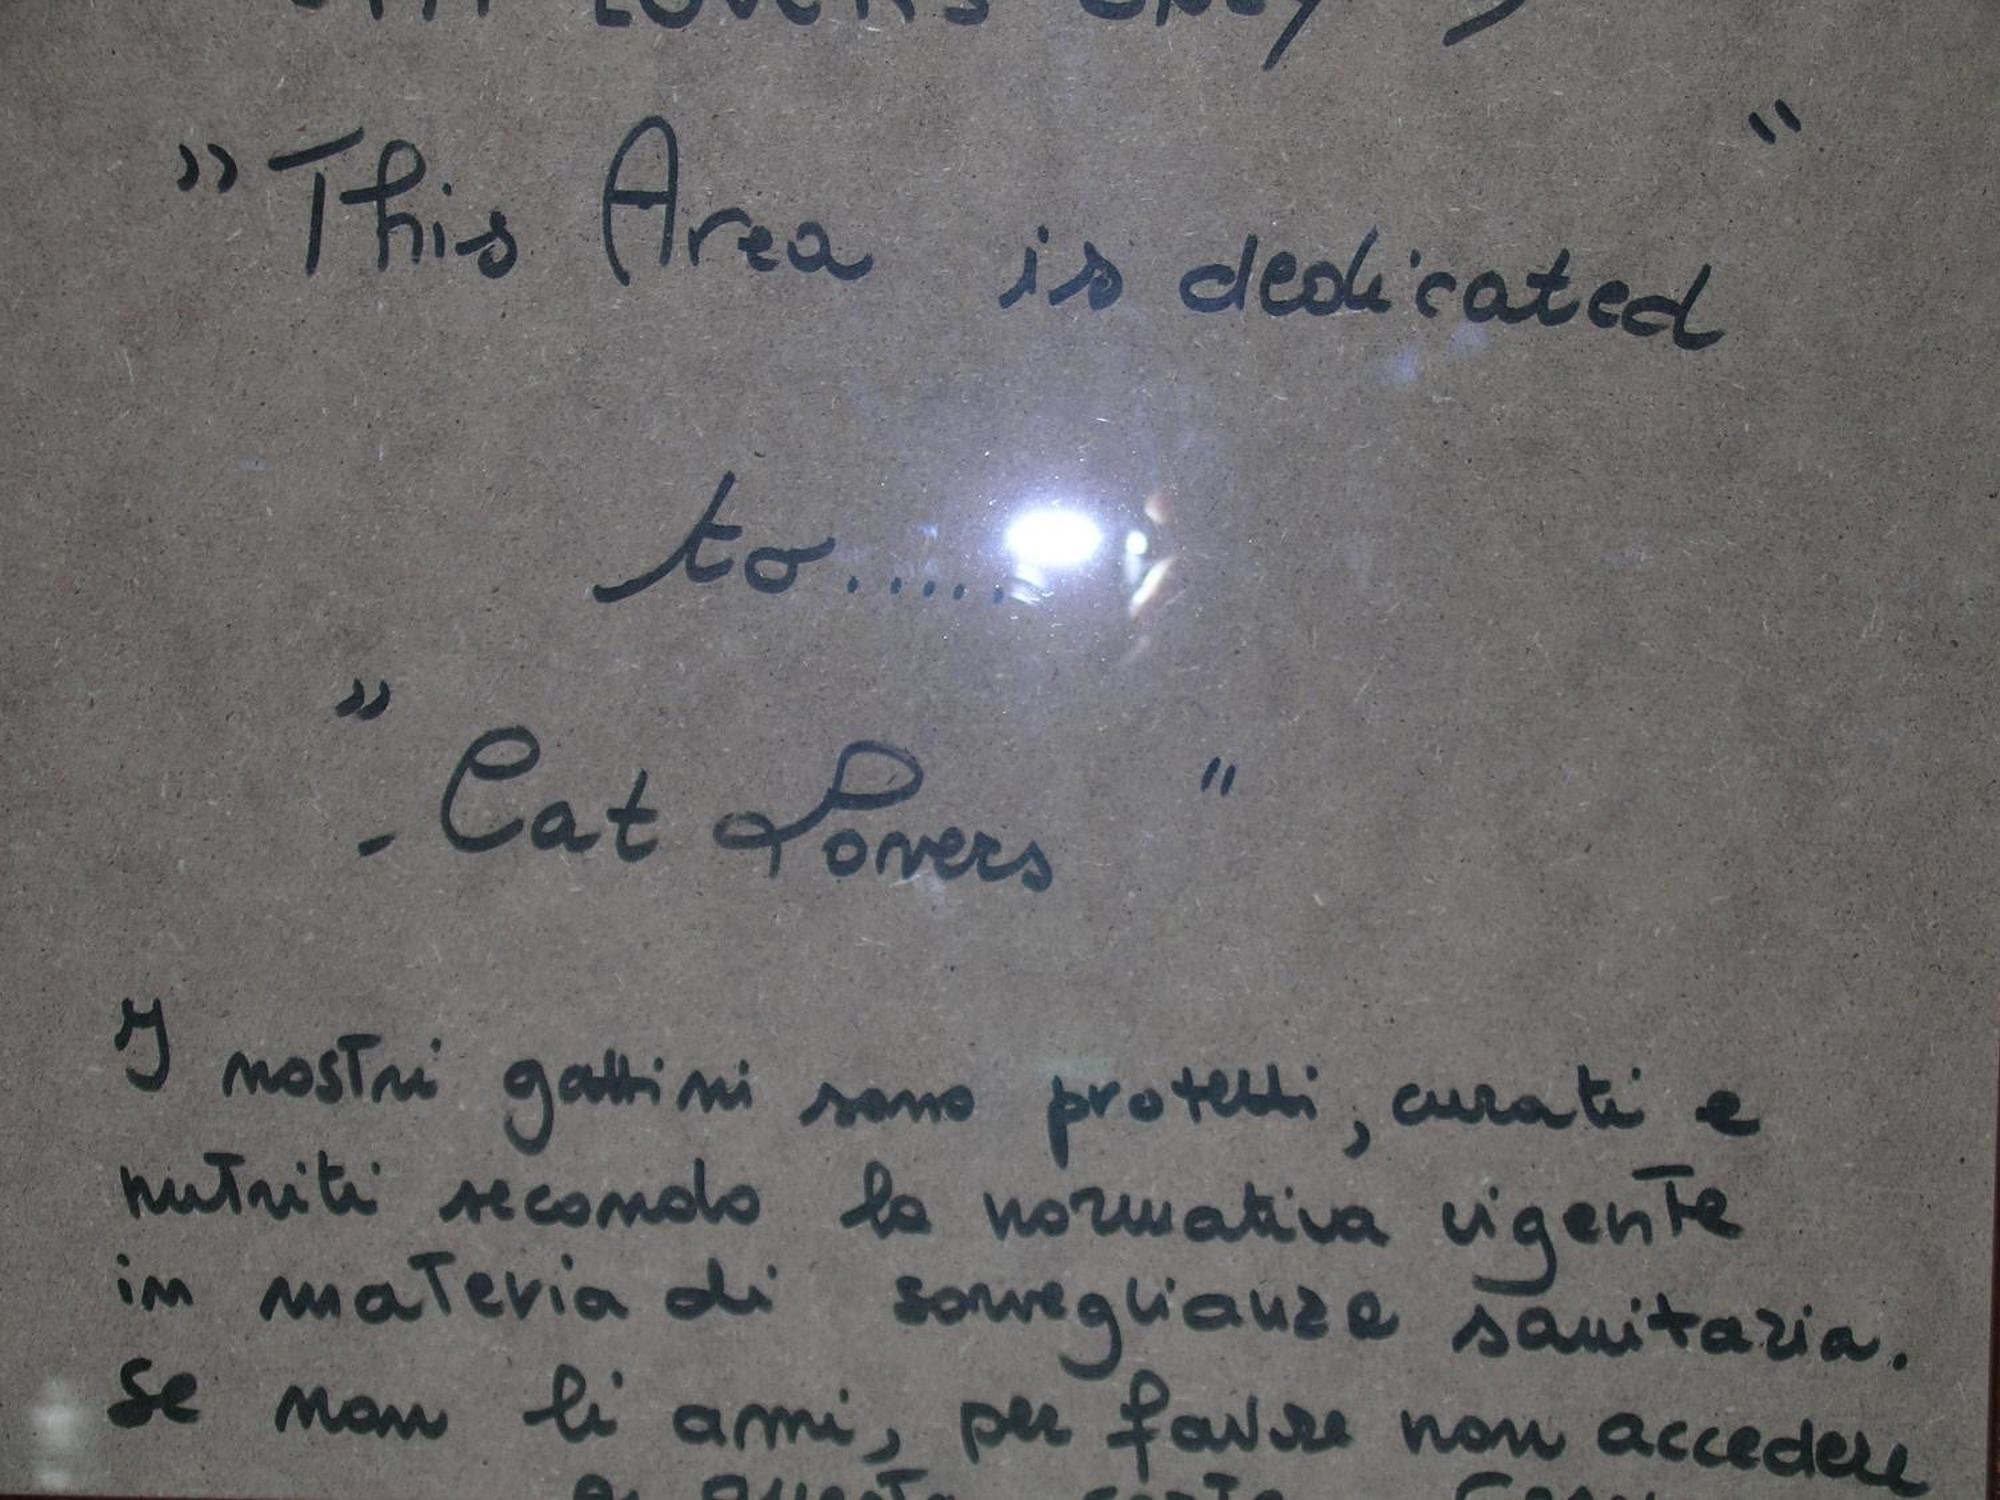 LOVERS ONLY
"This Area is dedicated"
to.....
"- Cat Lovers"
I nostri gattini sono protetti, curati e
nutriti secondo la normativa vigente
in materia di sorveglianza sanitaria.
Se non li ami, per favore non accedere
a questa